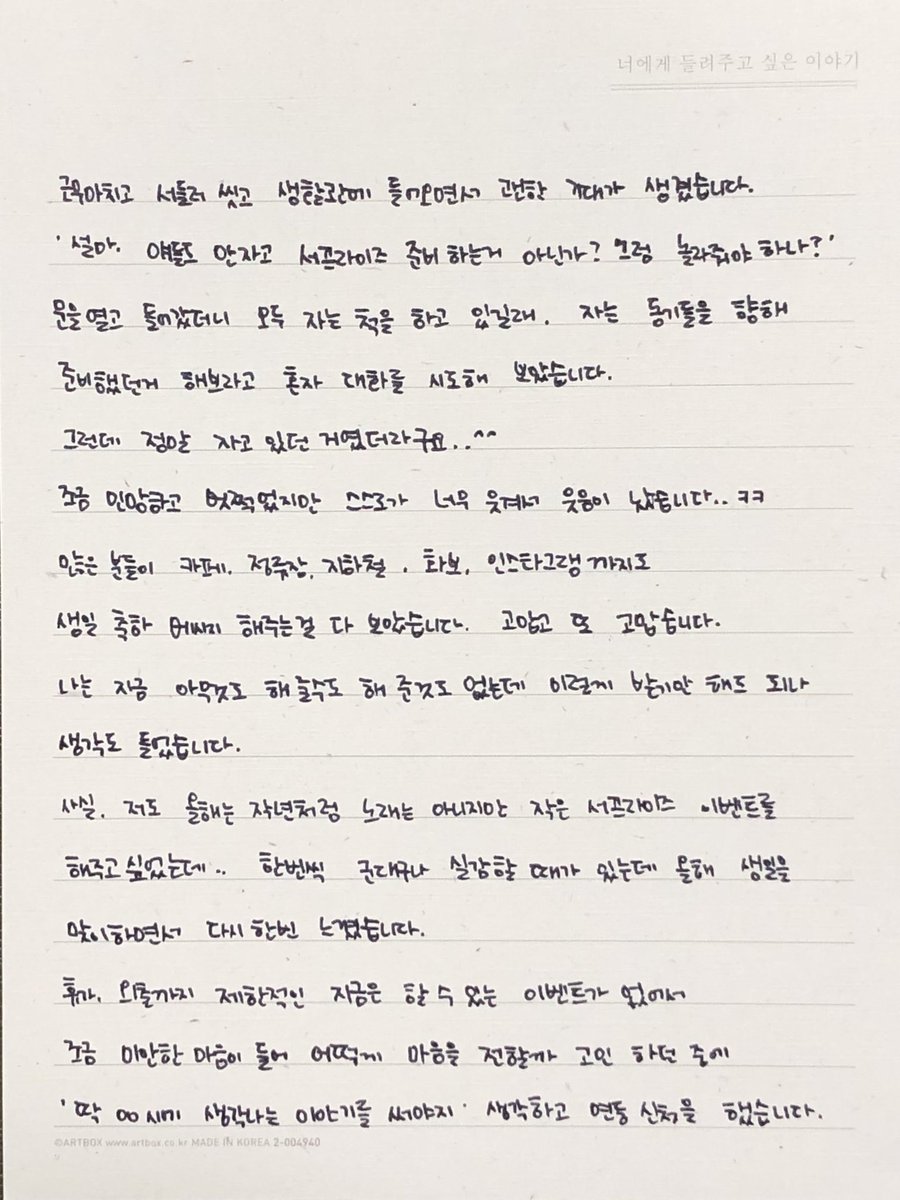 너에게 들려주고 싶은 이야기
근무마치고 서둘러 씻고 생활관에 들어오면서 괜한 기대가 생겼습니다.
'설마. 얘들도 안자고 서프라이즈 준비하는거 아닌가? 그럼 놀라줘야 하나?'
문을 열고 들어갔더니 모두 자는 척을 하고 있길래. 자는 동기들을 향해
준비했던거 해보라고 혼자 대화를 시도해 보았습니다.
그런데 정말 자고 있던 거였더라구요..^^
조금 민망하고 멋쩍었지만 스스로가 너무 웃겨서 웃음이 났습니다..ㅋㅋ
많은 분들이 카페, 정류장, 지하철, 화보, 인스타그램까지도
생일 축하 메세지 해주는걸 다 보았습니다. 고맙고 또 고맙습니다.
나는 지금 아무것도 해줄수도 해 준것도 없는데 이렇게 받기만 해도 되나
생각도 들었습니다.
사실, 저도 올해는 작년처럼 노래는 아니지만 작은 서프라이즈 이벤트를
해주고 싶었는데.. 한번씩 군대구나 실감할 때가 있는데 올해 생일을
맞이하면서 다시 한번 느꼈습니다.
휴가, 외출까지 제한적인 지금은 할 수 있는 이벤트가 없어서
조금 미안한 마음이 들어 어떻게 마음을 전할까 고민 하던 중에
'딱 00시에 생각나는 이야기를 써야지' 생각하고 연등 신청을 했습니다.
©ARTBOX www.artbox.co.kr MADE IN KOREA 2-004940